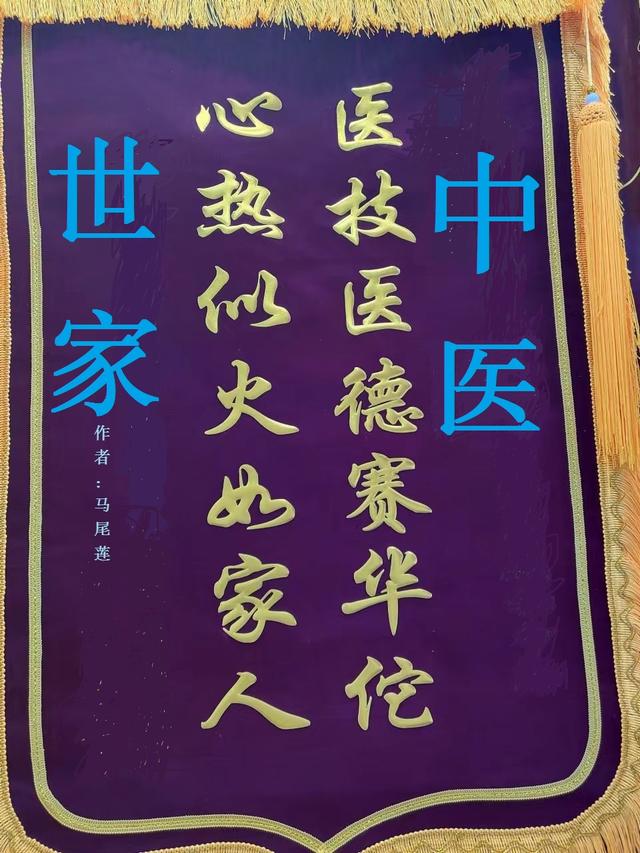 中医
医技医德赛华佗
心热似火如家人
世家
作者：马尾莲